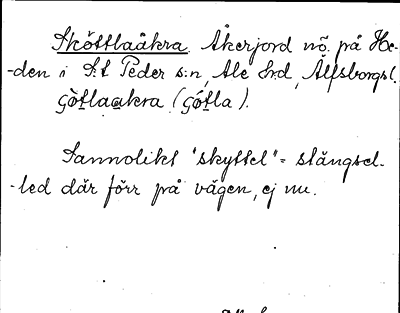 Sköttlaåkra. Åkerjord nö. på He-
-den i S:t Peder s:n, Ale Hrd, Älfsborgs l.
Gòtlaakra (Gótla).
Sannolikt "skyttel" = stängsel-
-led där förr på vägen, ej nu.